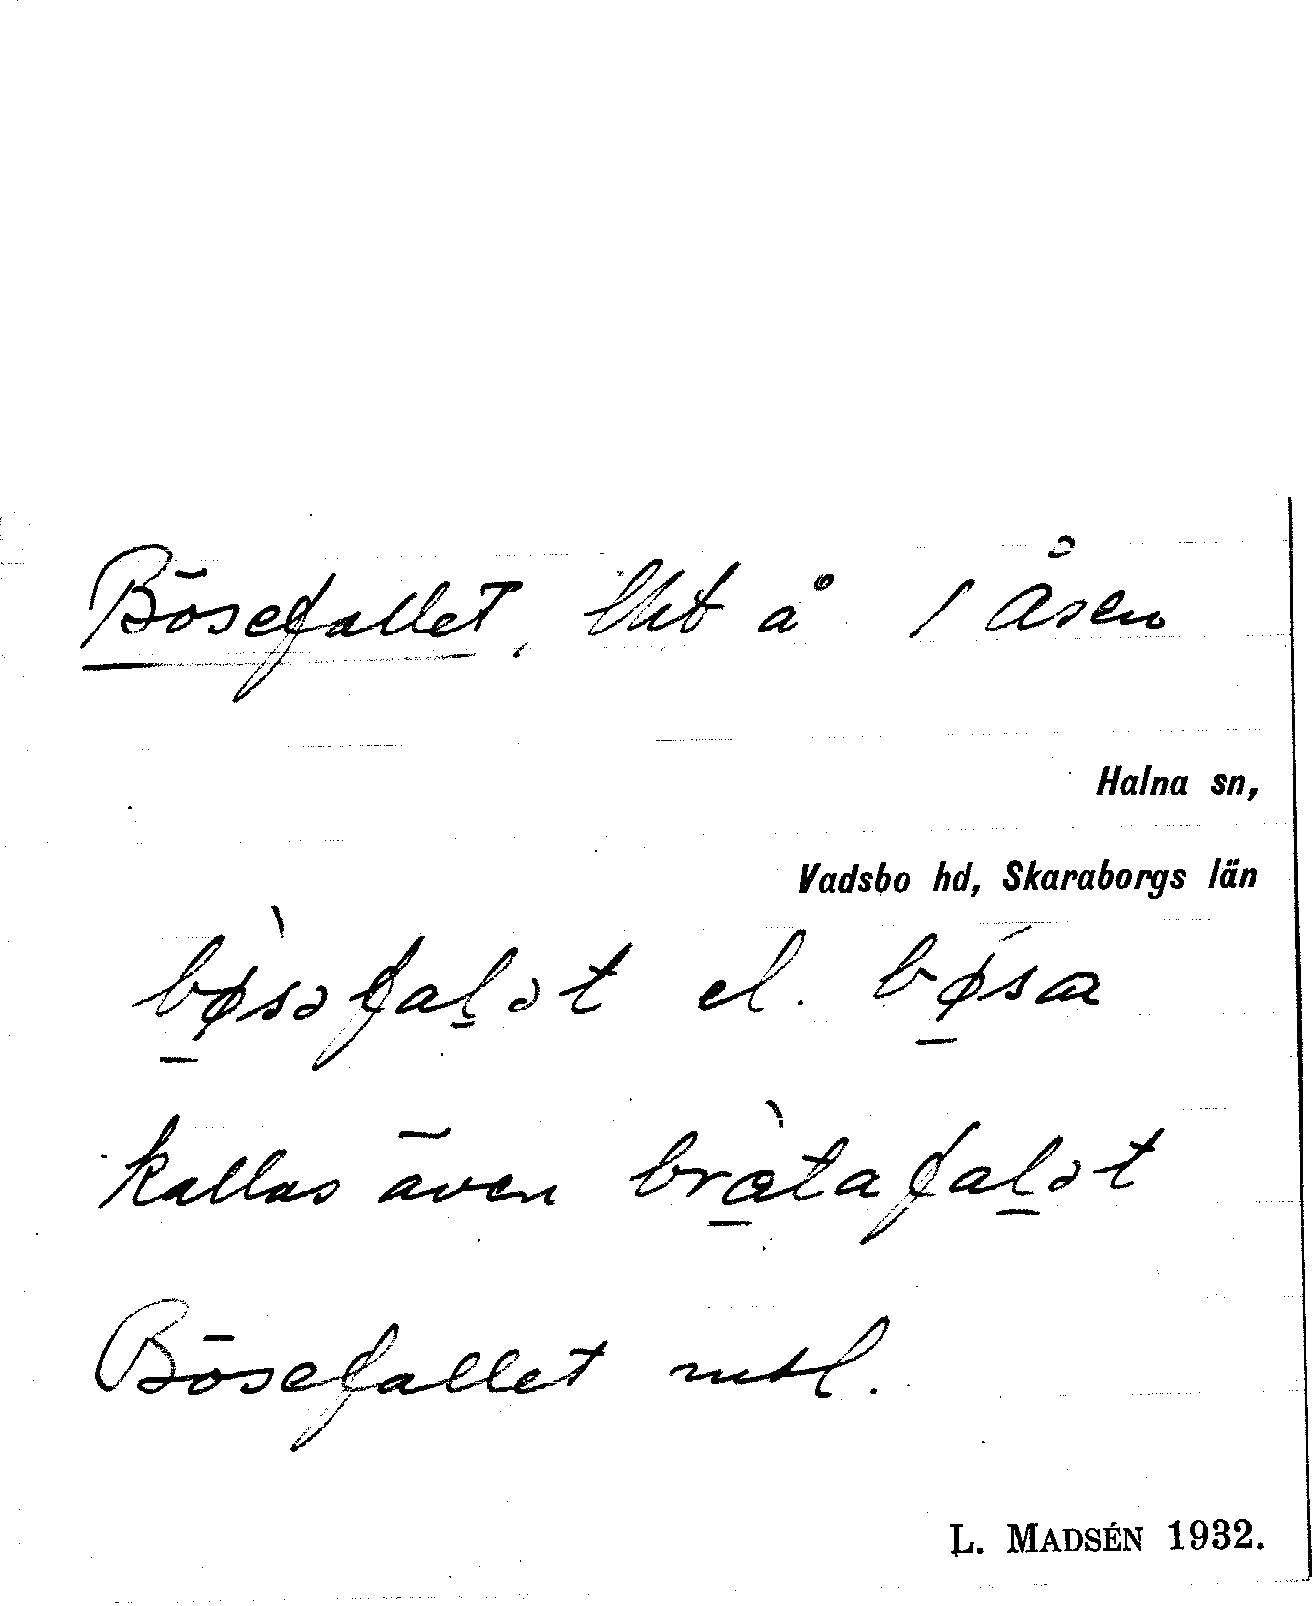 Bösefallet, lht å 1 Åsen
Halna sn,
Vadsbo hd, Skaraborgs län
bø̠̀səfaḻət el. bǿ̠sa
kallas även brà̠tafaḻət
Bösefallet mtl.
L. MADSÉN 1932.